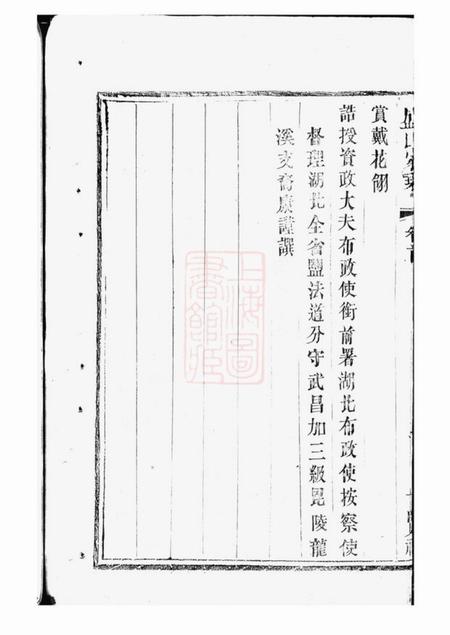 盛氏家乘
卷首
賞戴花翎
誥授資政大夫布政使銜前署湖北布政使按察使
督理湖北全省鹽法道分守武昌加三級毘陵龍
溪支裔康謹譔
上海圖
書館藏